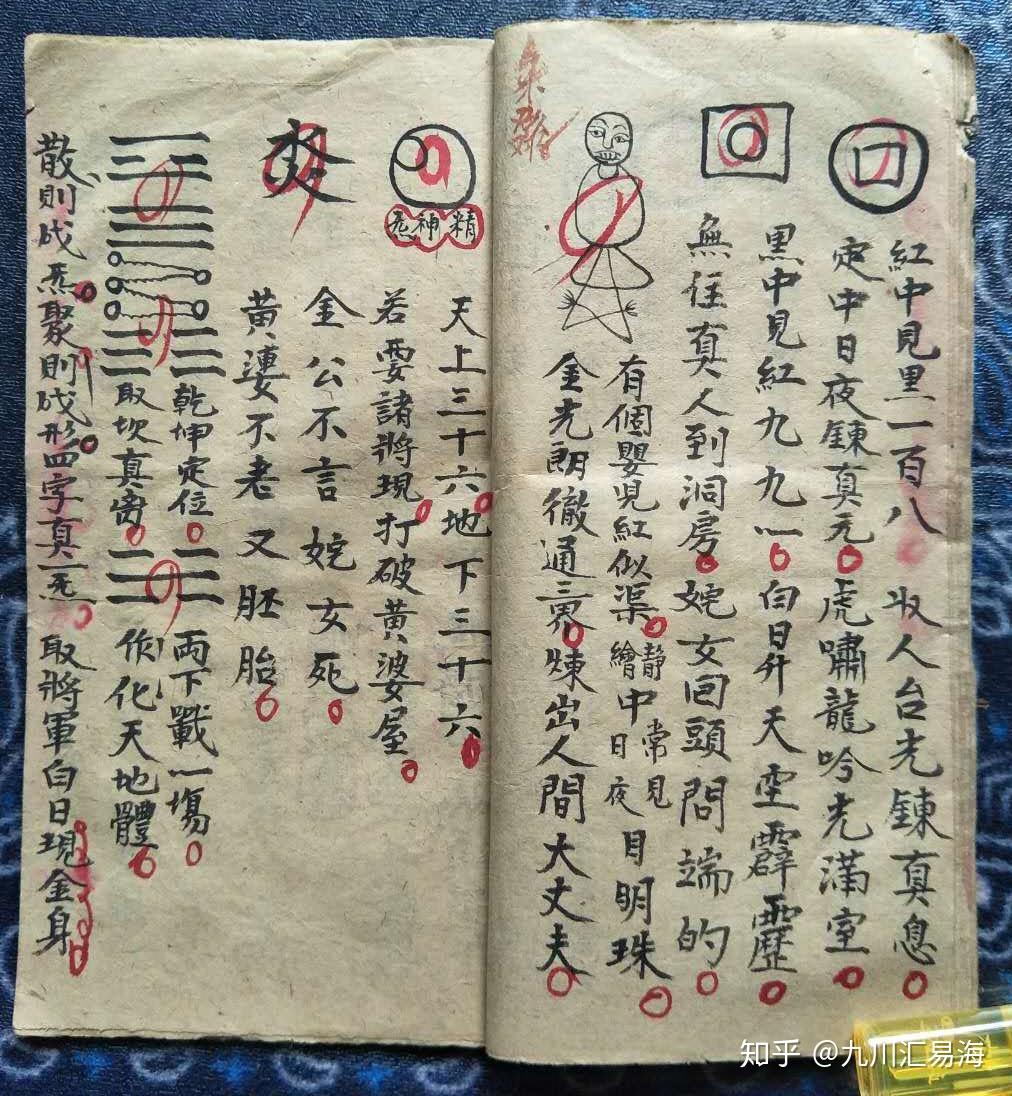 紅中見黒一百八 收人台光錬真息
定中日夜錬真炁 虎嘯龍吟光满室
黒中見紅九九一 白日升天空霹靂
無住真人到洞房 姹女回頭問端的
有個嬰児紅似渠 繪静中常見日夜目明珠
金光朗徹通三界 煉出人間大丈夫
精神炁
天上三十六 地下三十六
若要諸將現 打破黄婆屋
金公不言姹女死
黄婆不老又胚胎
乾坤定位 両下戰一塲
取坎真离 作化天地體
散則成炁 聚則成形 四字真一炁 取將軍白日現金身
知乎 @九川汇易海